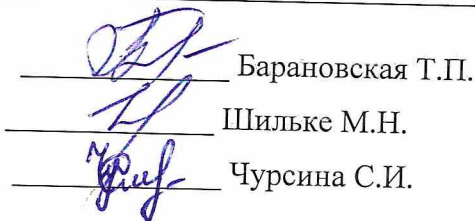 Барановская Т.П.
Шильке М.Н.
Чурсина С.И.